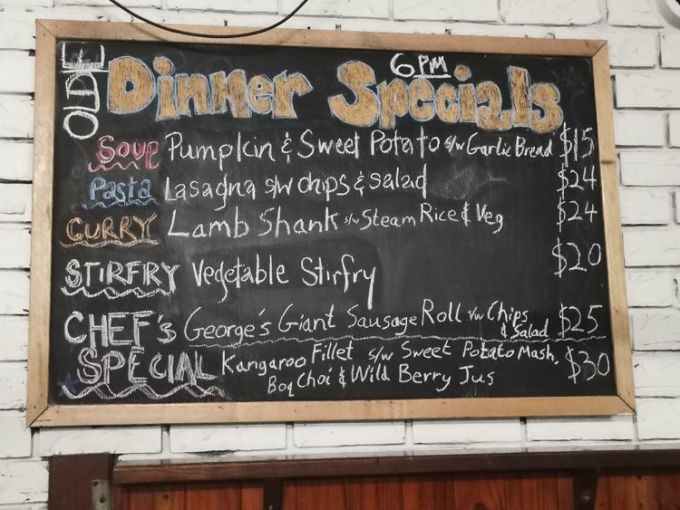 OLDE Dinner Specials 6PM
Soup Pumpkin & Sweet Potato s/w Garlic Bread $15
Pasta Lasagna s/w chips & salad $24
CURRY Lamb Shank s/w Steam Rice & Veg $24
STIRFRY Vegetable Stirfry $20
CHEF's George's Giant Sausage Roll s/w Chips & Salad $25
SPECIAL Kangaroo Fillet s/w Sweet Potato Mash, $30
Boq Choi & Wild Berry Jus